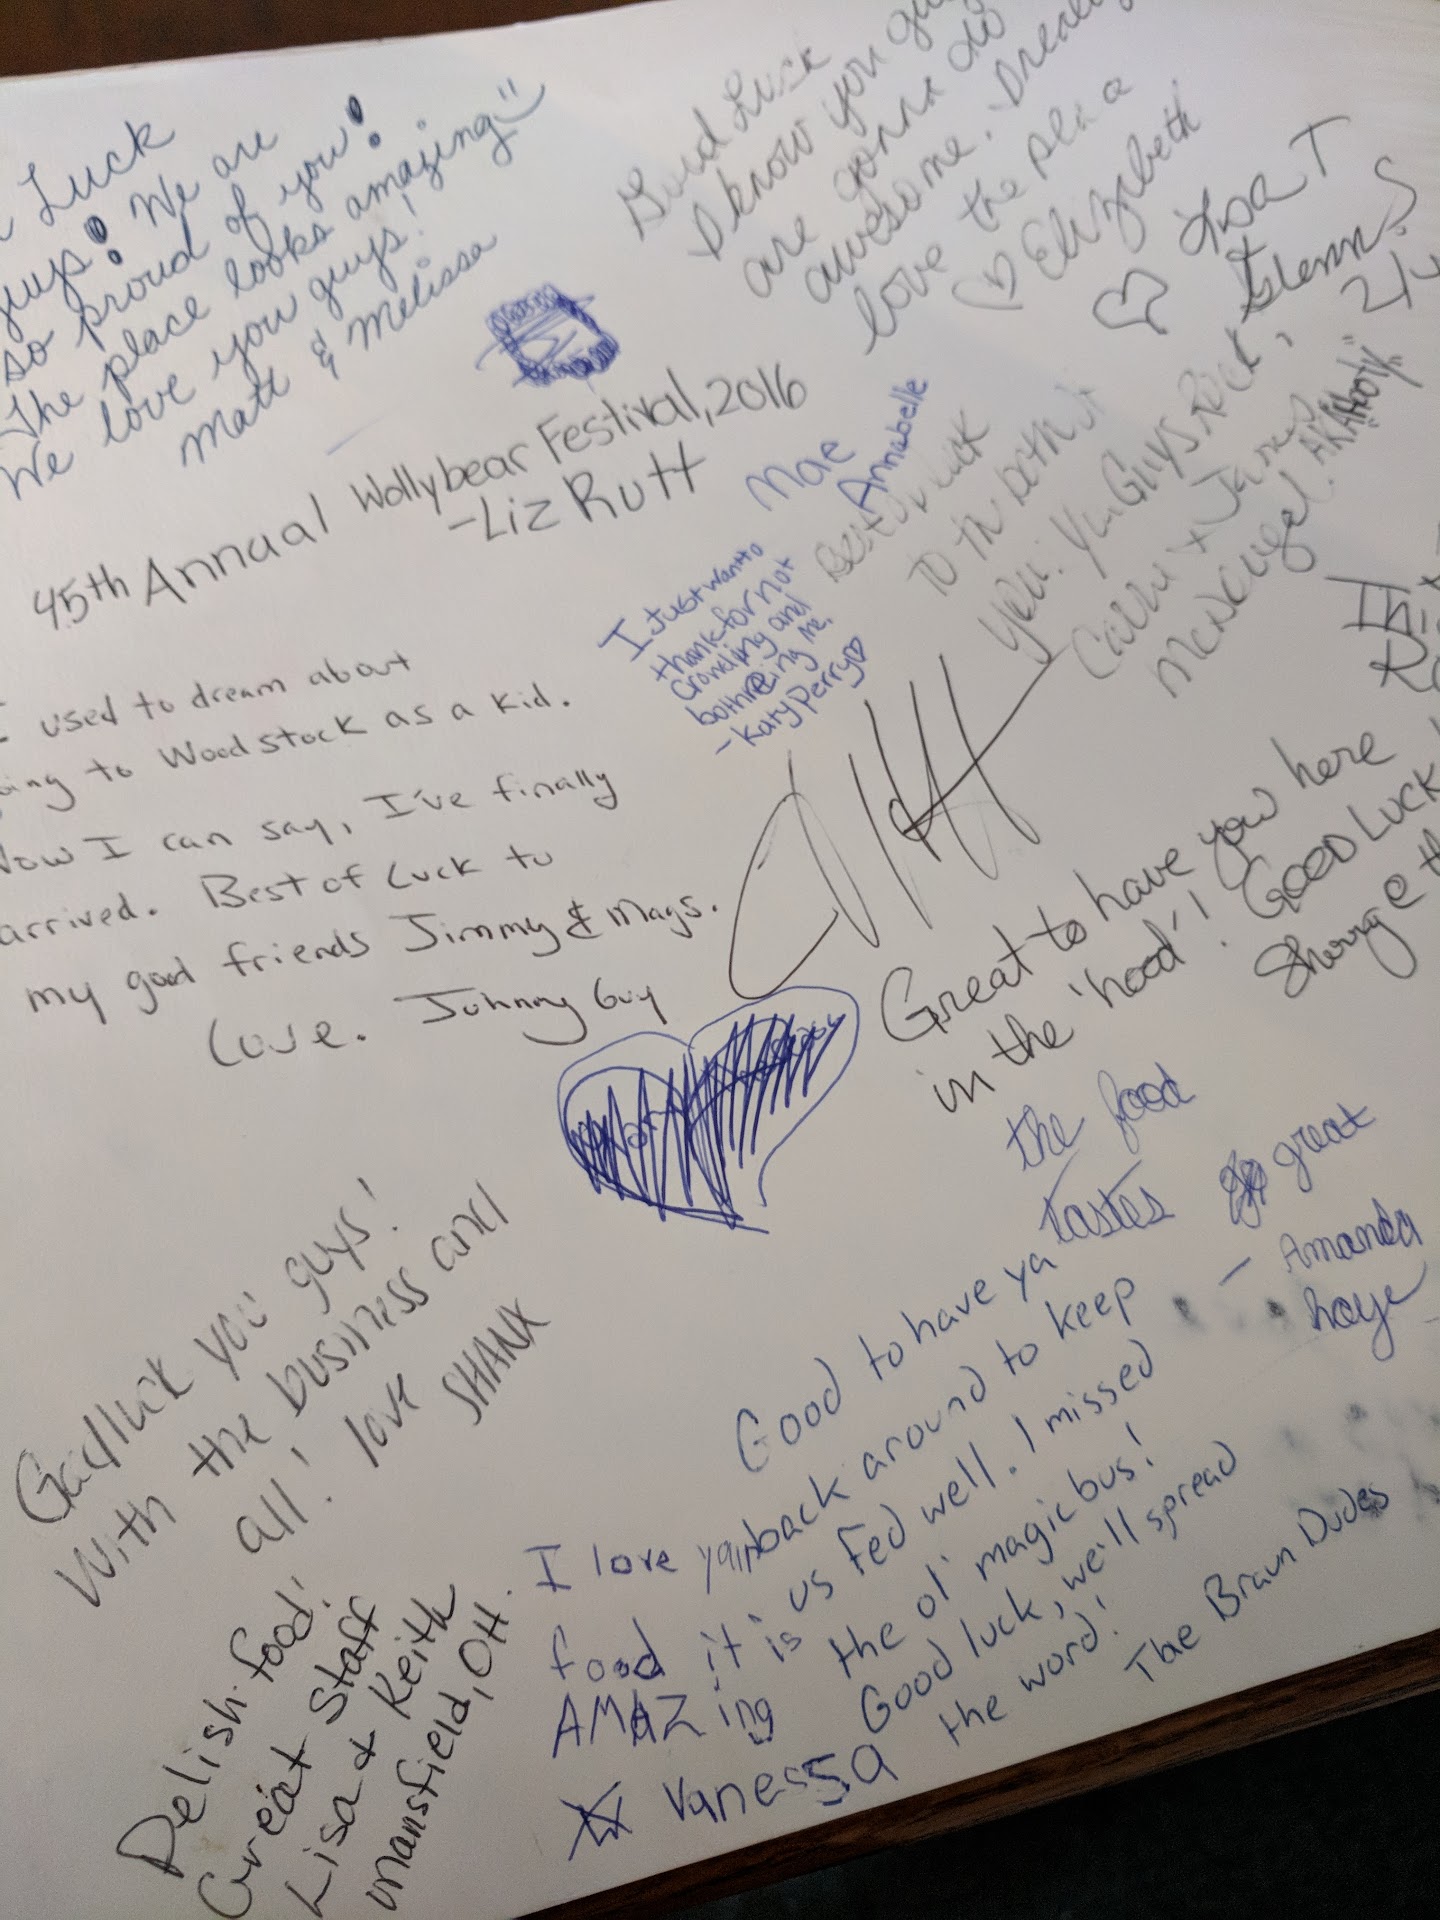 Luck
guys! We are
so proud of you!
The place looks amazing
We love you guys!
Matt & Melissa
Good Luck
I know you guys
are gonna do
awesome.
love the place
Elizabeth
Lisa T
Glenn S
45th Annual Wollybear Festival, 2016
-Liz Rutt
Mae
Annabelle
I Just want to
thank for not
Crowding and
me.
-Katy Perry
Best of Luck
to the both of
you! You Guys Rock,
James
McDougal. AKA
I used to dream about
going to Woodstock as a kid.
Now I can say, I've finally
arrived. Best of Luck to
my good friends Jimmy & Mags.
Love. Johnny Guy
Great to have you here
in the 'hood'! GOOD LUCK
the food
tastes great
- Amanda
haye
Goodluck you guys!
with the business and
all! love SHANX
Delish food!
Great Staff
Lisa & Keith
mansfield, OH.
I love
food it is
AMAZing
Vanessa
Good to have ya
back around to keep
us fed well. I missed
the ol' magic bus!
Good luck, we'll spread
the word!
The Braun Dudes